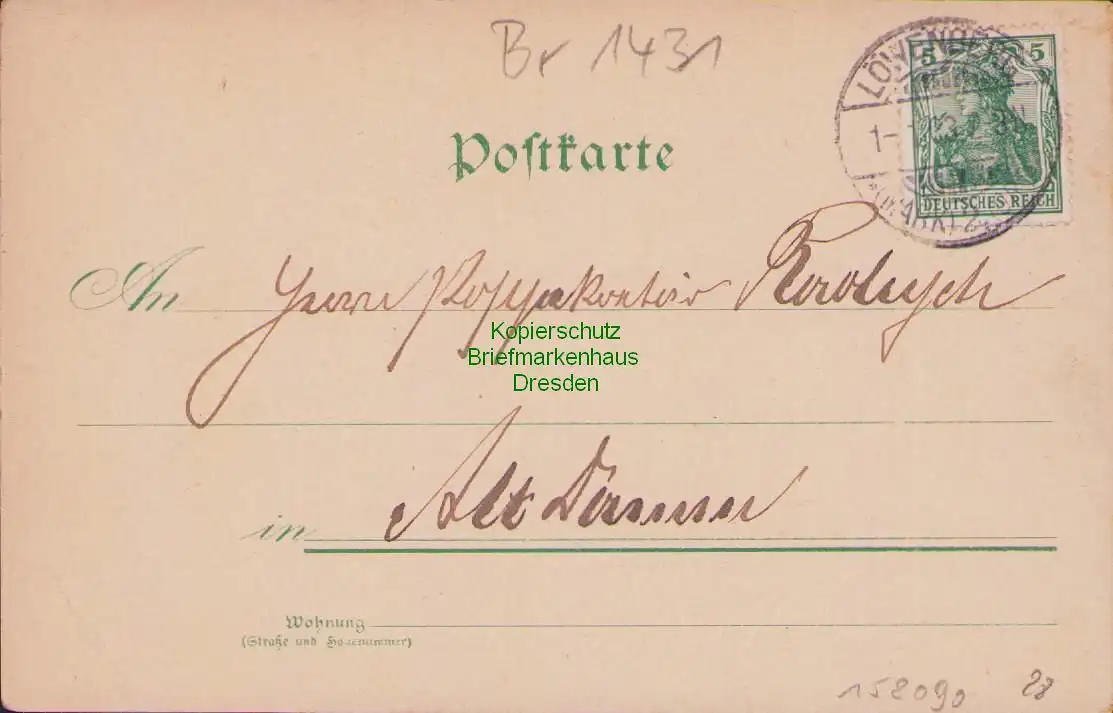 Br 1431
5 5
DEUTSCHES REICH
LÖWENBERG
(MARK) 2
Postkarte
An Herrn
Kopierschutz
Briefmarkenhaus
Dresden
Alt Damm
in
Wohnung
(Straße und Hausnummer)
158090 28